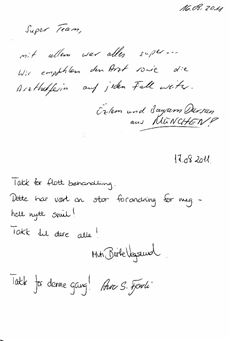 16.08.2011
Super Team,
mit allem war alles super...
Wir empfehlen den Arzt sowie die
Arzthelferin auf jeden Fall weiter.
Özlem und Bayram Dursun
aus MÜNCHEN!
17.08.2011.
Takk for flott behandling.
Dette har vært en stor forandring for meg -
helt nytt smil!
Takk til dere alle!
Mvh Bente
Takk for denne gang!